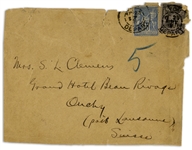 5
Mrs. S. L. Clemens
Grand Hotel Beau Rivage
Ouchy
(près Lausanne)
Suisse